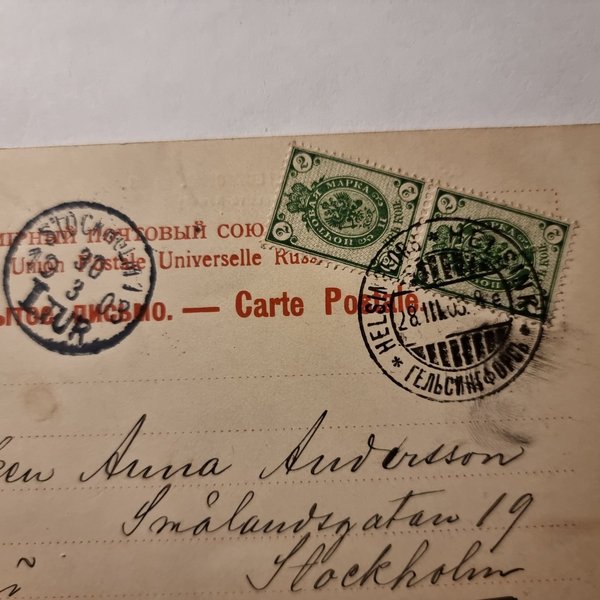 2 2
ПОЧТОВАЯ МАРКА
2 2
МАРКА
ИРНЫЙ ПОЧТОВЫЙ СОЮ
Union Postale Universelle Rus
ЫТОЕ ПИСЬМО. — Carte Postale
STOCKHOLM 1
30
3 03
1 TUR
HELSINKI
28.III.03
* ГЕЛЬСИНГФОРСЪ *
Anna Andersson
Smålandsgatan 19
Stockholm